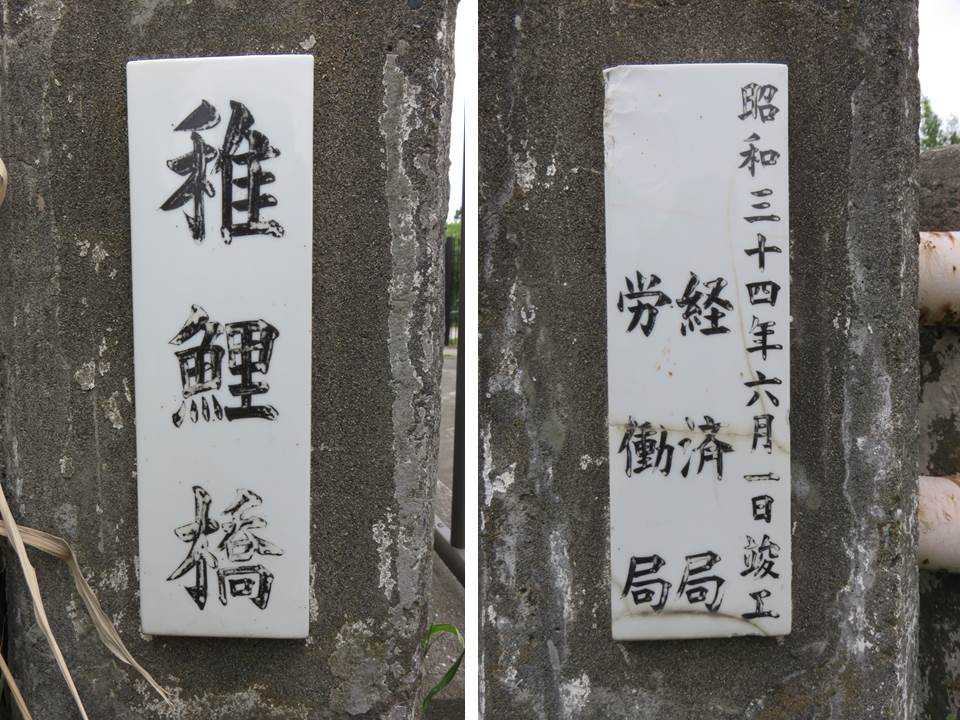 稚鯉橋
昭和三十四年六月一日竣工
経済局
労働局